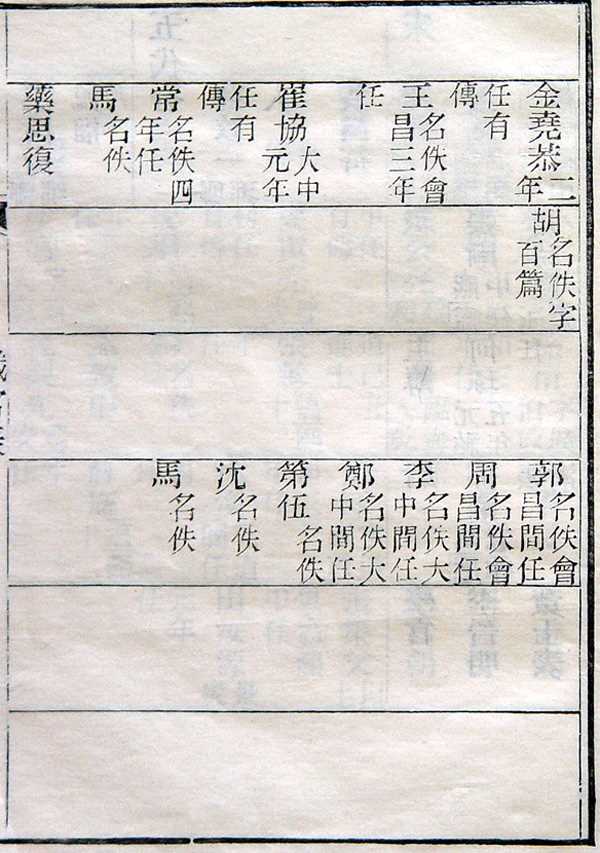 金堯恭二年
任有傳
王名佚會昌三年
任
崔協大中元年
任有傳
常名佚四年任
馬名佚
藥思復
胡名佚字百篇
郭名佚會昌間任
周名佚會昌間任
李名佚大中間任
鄭名佚大中間任
第伍名佚
沈名佚
馬名佚